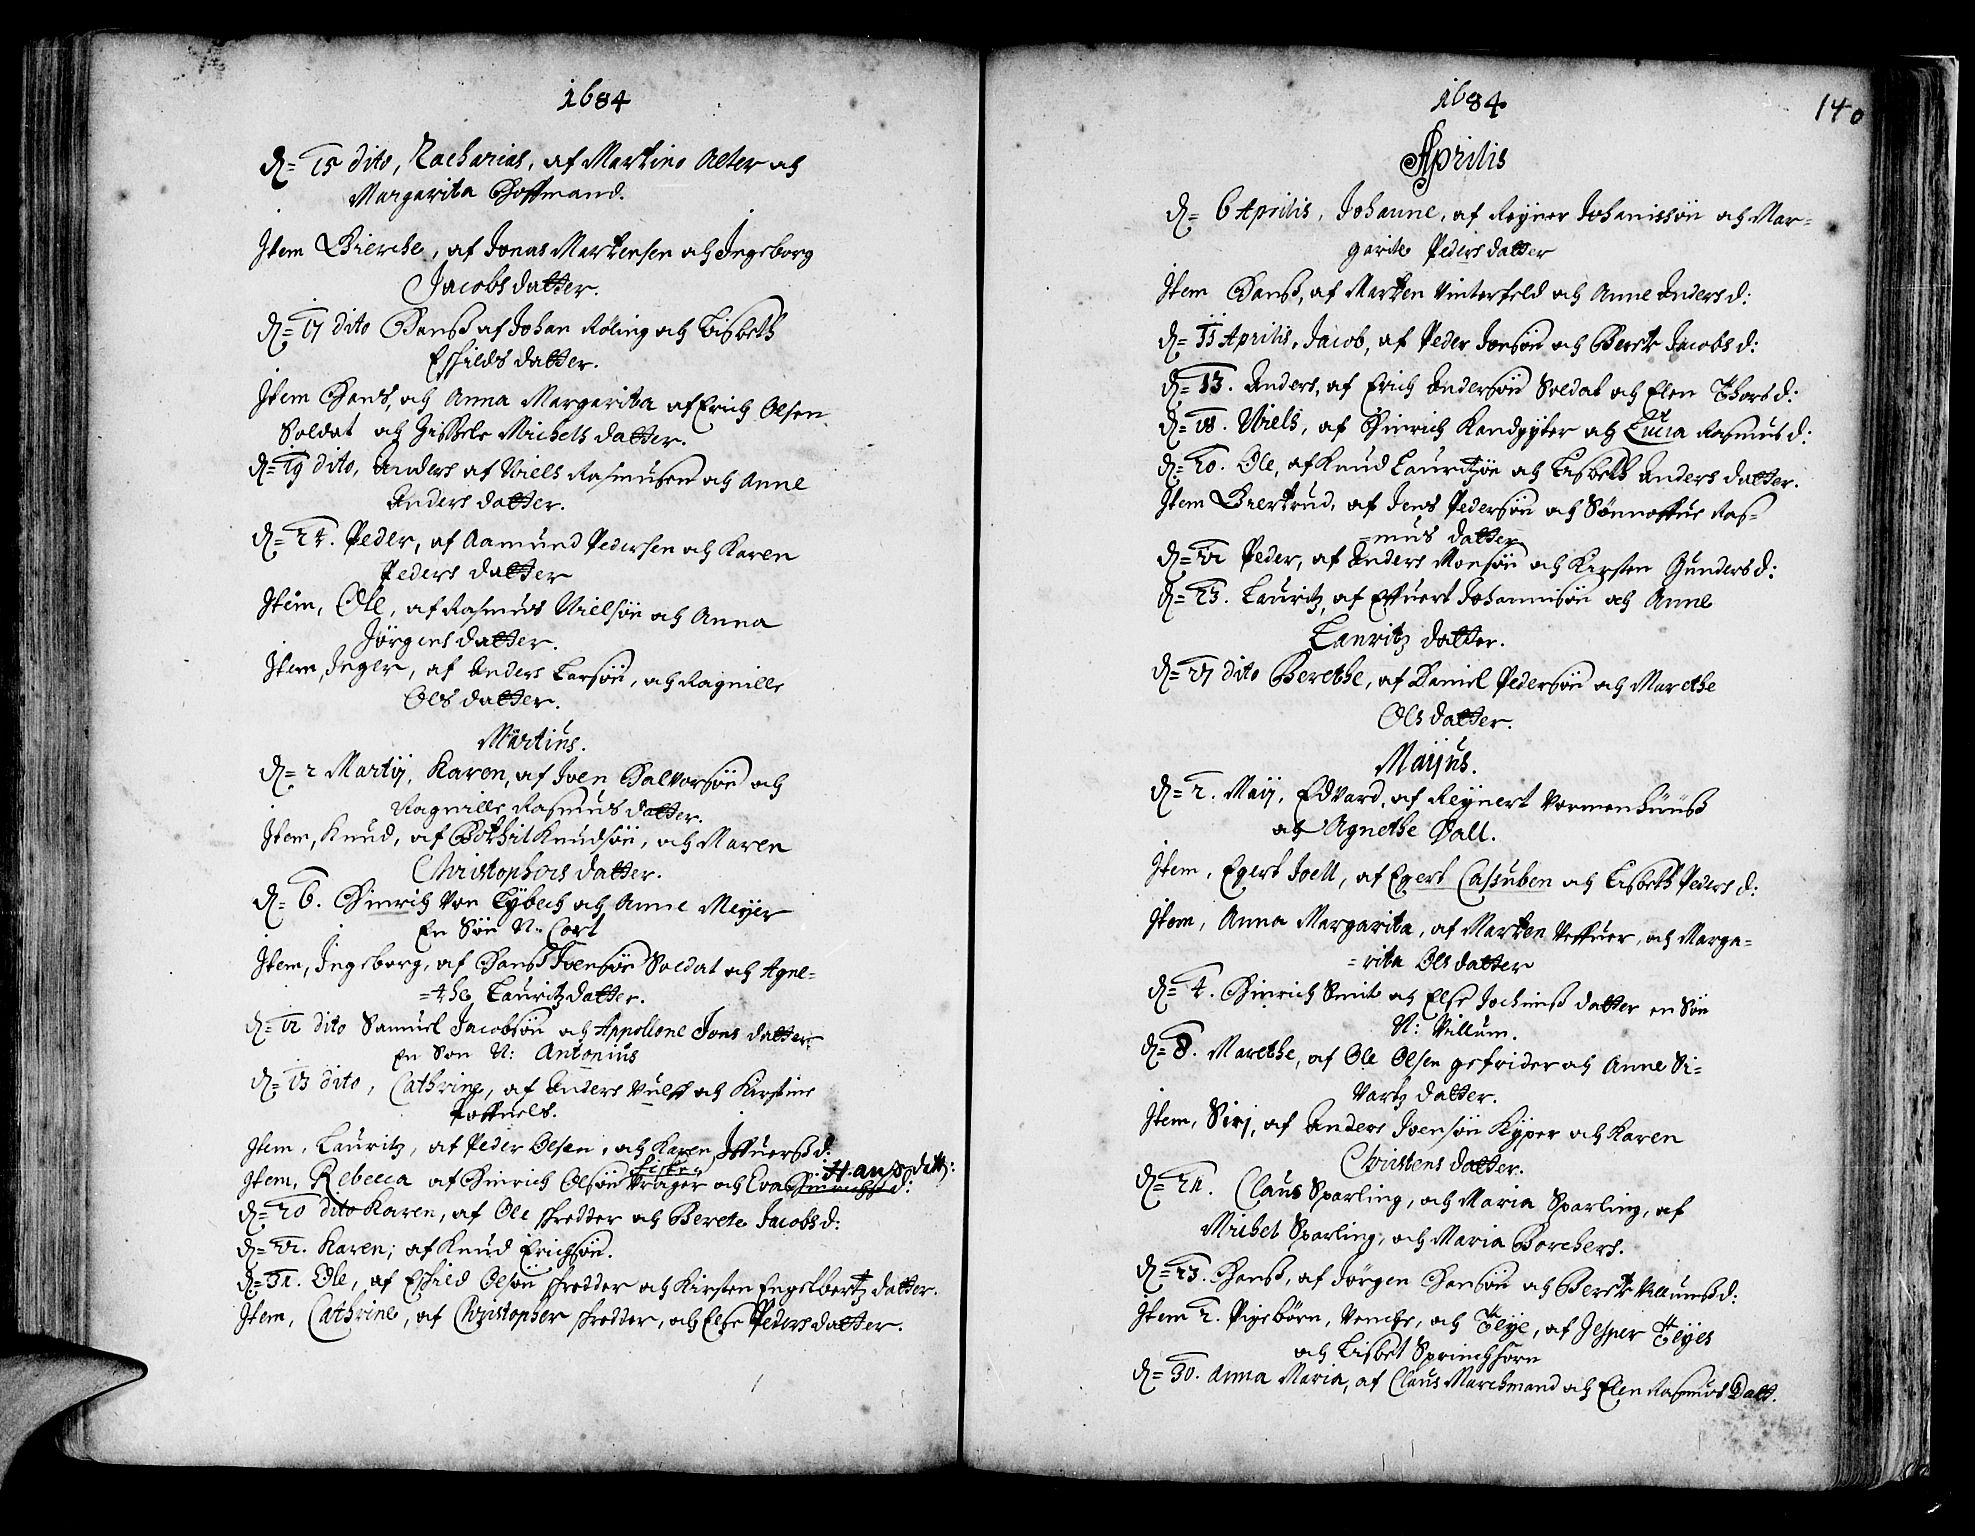 1684
D= 15 dito, Zacharias, af Martino Alter och
Margarita Hoffmand.
Item Bierche, af Jonas Martensen och Ingeborg
Jacobs datter.
D= 17 dito Hanss af Johan Röling och Lisbeth
Eskilds datter.
Item Hans, och Anna Margarita af Erich Olsen
Soldat och Zissele Michels datter.
D= 19 dito, Anders af Niels Rasmusen och Anne
Anders datter.
D= 24. Peder, af Aamund Pedersen och Karen
Peders datter
Item, Ole, af Rasmus Nielsön och Anna
Jörgens datter.
Item, Inger, af Anders Larsön, och Ragnille
Ols datter.
Martius.
D= 2 Martij, Karen, af Iven Halvorsön och
Ragnille Rasmus datter.
Item, Knud, af Bothil Knudsön, och Maren
Christophers datter.
D= 6. Hinrich von Lybech och Anne Meyer
En Sön N: Cort
Item, Ingeborg, af Hanss Ivensön Soldat och Agne=
=the Lauritz datter.
D= 12 dito Samuel Jacobsön och Appolione Jons datter
En Son N: Antonius
D= 13 dito, Cathrine, af Anders Vulff och Kirstine
Poffuels.
Item, Lauritz, af Peder Olsen, och Karen Iffuerss d:
Item, Rebecca af Hinrich Olsön Kräger och Eva Hinrichs d: Hans datt:
D= 20 dito Karen, af Ole skredder och Berete Jacobs d:
D= 21. Karen; af Knud Erichsön.
D= 31. Ole, af Eskild Olsön skredder och Kirsten Engelbertz datter.
Item, Cathrine, af Christopher skredder, och Else Peders datter.
1684 140
Aprilis
D= 6 Aprilis, Johanne, af Reyner Johanissön och Mar-
garite Peders datter
Item Hanss, af Marten Vinterfeld och Anne Anders d:
D= 11 Aprilis, Jacob, af Peder Jensön och Berete Jacobs d:
D= 13. Anders, af Erich Andersön Soldat och Elen Thors d:
D= 18. Niels, af Hinrich Kandgyter och Lucia Rasmus d:
D= 20. Ole, af Knud Lauritzön och Lisbeth Anders datter.
Item Giertrud, af Jens Pedersön och Sönnoffue Ras=
=mus datter
D= 21 Peder, af Anders Monsön och Kirsten Gunders d:
D= 23. Lauritz, af Effuert Johannisön och Anne
Lauritz datter.
D= 27 dito Berethe, af Daniel Pedersön och Marethe
Ols datter.
Maijus.
D= 2. Maij, Edvard, af Reynert Vormenhuuss
och Agnethe Dall.
Item, Egert Joell, af Egert Cassuben och Lisbeth Peders d:
Item, Anna Margarita, af Marten Veffuer, och Marga=
=rita Ols datter
D= 4. Hinrich Smit och Else Jochimss datter en Sön
N: Villum.
D= 8. Marethe, af Ole Olsen gefrider och Anne Si=
vartz datter.
Item, Siri, af Anders Ivensön Kyper och Karen
Christens datter.
D= 21. Claus Sparling, och Maria Sparling, af
Michel Sparling, och Maria Borchers.
D= 23. Hanss, af Jörgen Hansön och Berete Villumss d:
Item 2. Pigebörn, Venche, och Teye, af Jesper Teyes
och Lisbet Sprinckhorn
D= 30. Anna Maria, af Claus Marchmand och Elen Rasmus Datt.